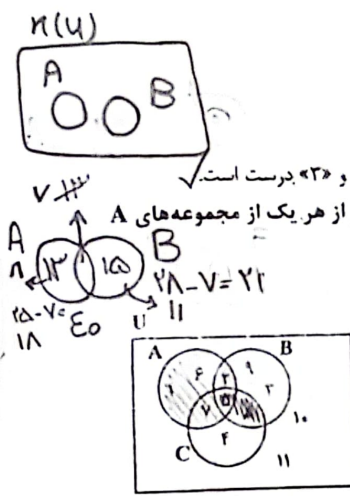 n(U)
A
B
و «۳» درست است.
از هر یک از مجموعه‌های A
۷
A
B
۱۳
۱۵
۲۸-۷=۲۱
۲۵-۷=
۱۸
۴۰
U
۱۱
A
B
۶
۲
۹
۳
۵
۷
۴
C
۱۰
۱۱